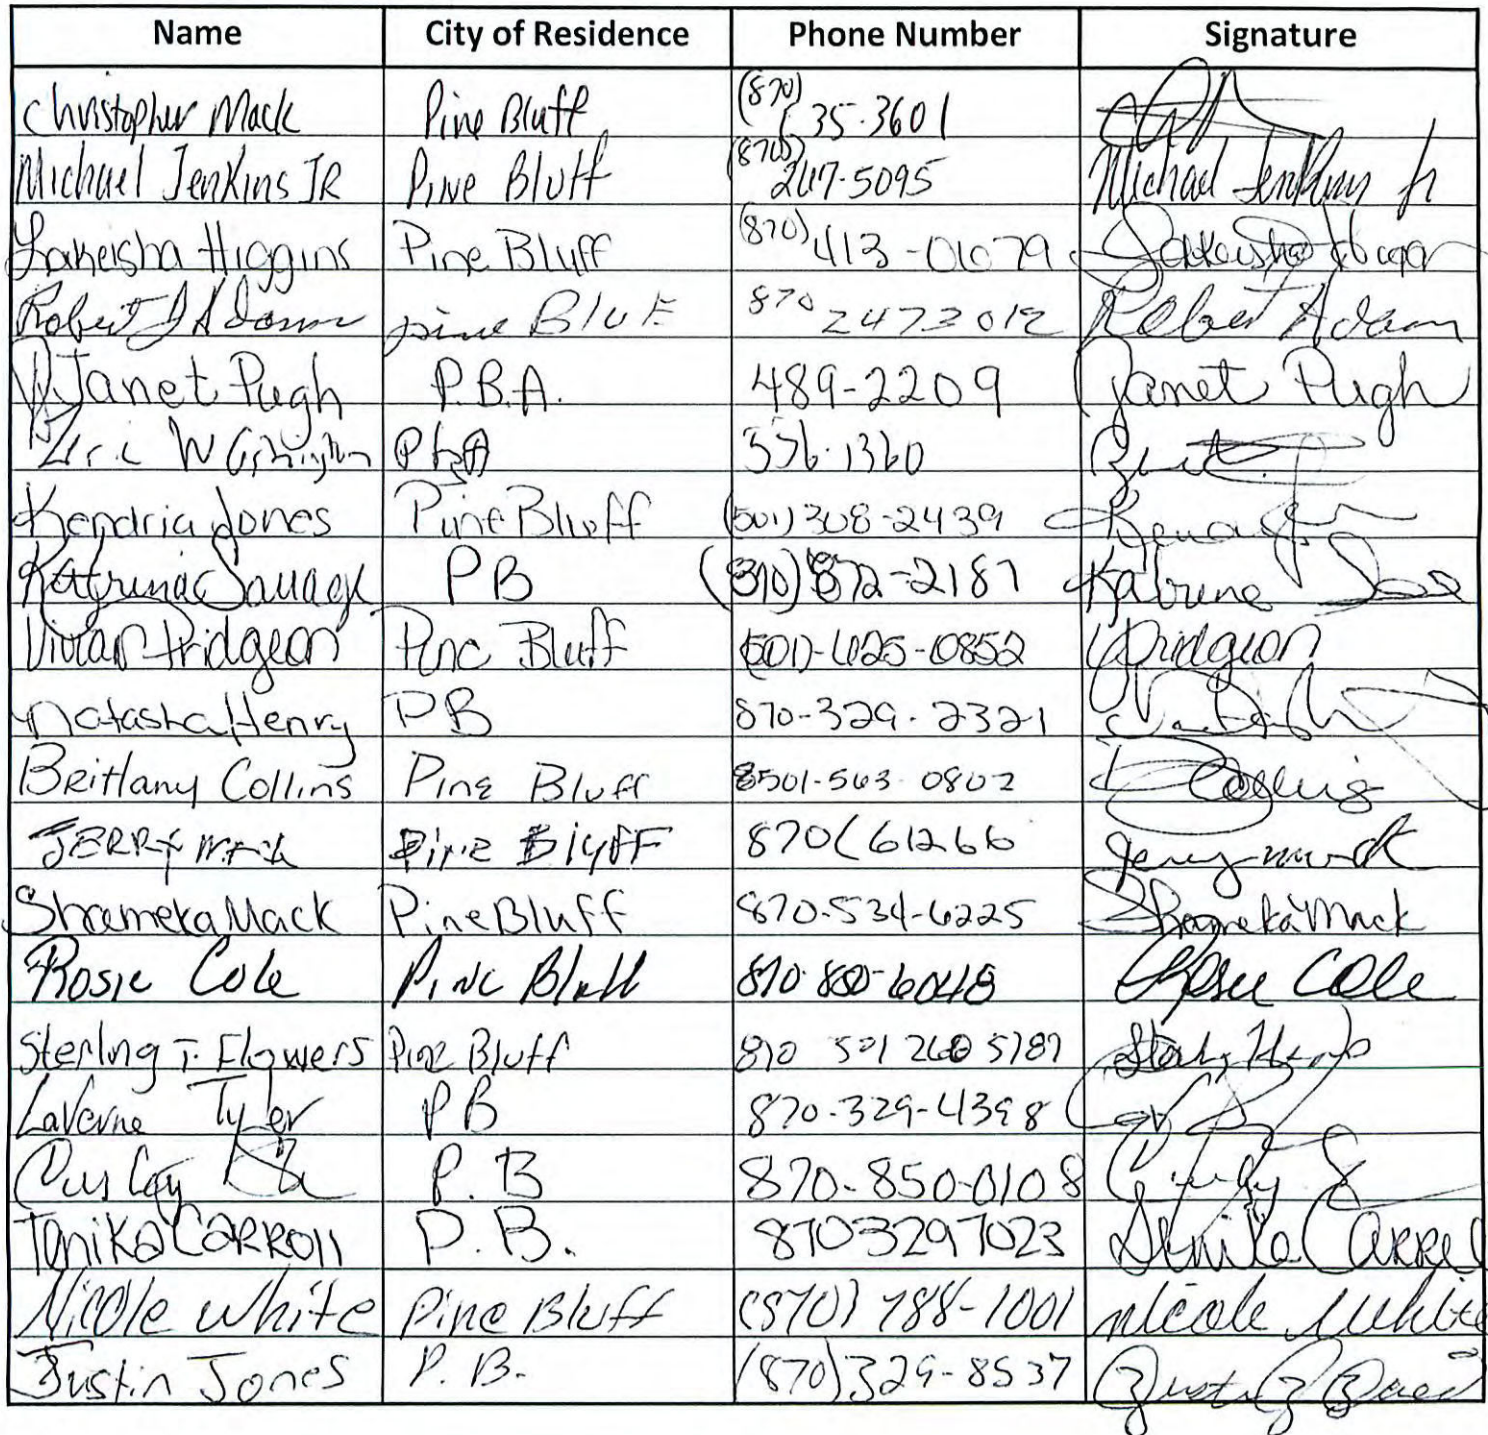 Name City of Residence Phone Number Signature
Christopher Mack Pine Bluff (870) 35-3601
Michael Jenkins JR Pine Bluff (870) 247-5095 Michael Jenkins Jr
Lakeisha Higgins Pine Bluff (870) 413-0679 Lakeisha
Robert J Adams pine Bluf 870 2473012 Robert Adam
Janet Pugh P.B.A. 489-2209 Janet Pugh
536-1360
Kendria Jones Pine Bluff (501) 308-2439
Katrina Savage PB (870) 872-2187 Katrina
Vivian Pridgeon Pine Bluff (501)-625-0852 VPridgeon
Natasha Henry PB 870-329-2321
Brittany Collins Pine Bluff 501-563-0802 B Collins
JERRY Mack Pine Bluff 870 61266 Jerry mack
Shameka Mack Pine Bluff 870-534-6225 Shameka Mack
Rosie Cole Pine Bluff 870-880-6048 Rosie Cole
Sterling T. Flowers Pine Bluff 870 501 260 5787
LaVerne Tyler PB 870-329-4398
P.B 870-850-0108
Tanika CARROll P.B. 8703297023 Tanika Carrol
Nicole White Pine Bluff (870) 788-1001 nicole White
Justin Jones P.B. (870) 329-8537